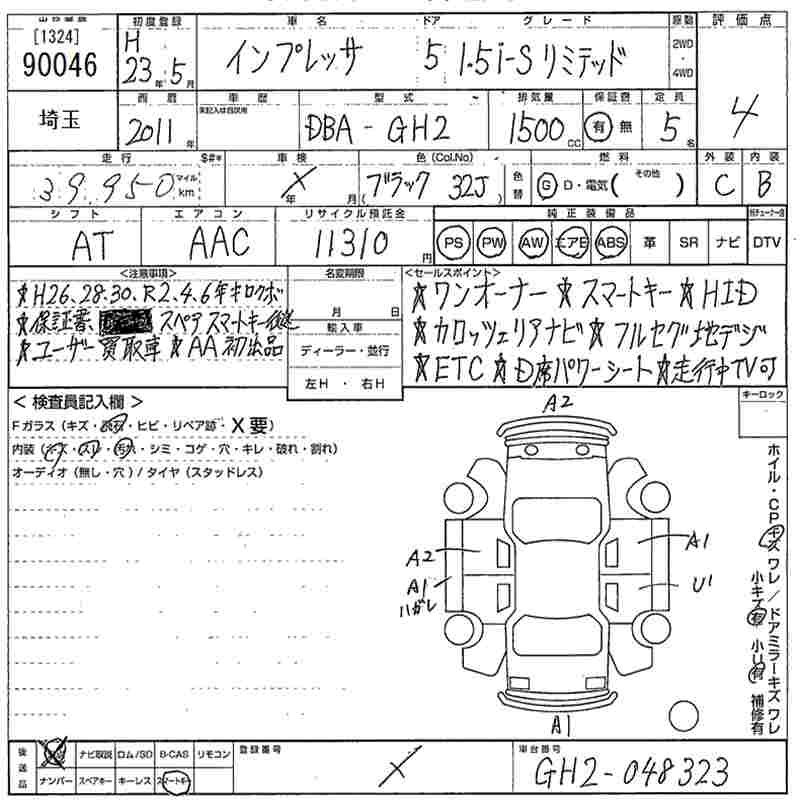 出品番号 初度登録 車名 ドア グレード 駆動 評価点
[1324] 90046 H 23年 5月 インプレッサ 5 1.5i-S リミテッド 2WD・4WD 4
埼玉 西暦 車歴 型式 排気量 保証書 定員
2011年 未記入は自家用 DBA-GH2 1500cc 有 無 5名
走行 $#* 車検 色(Col.No) 燃料 外装 内装
39,950 マイル km X 年 月 (ブラック 32J) 色替 G D・電気( その他 ) C B
シフト エアコン リサイクル預託金 純正装備品
AT AAC 11310円 PS PW AW エアB ABS 革 SR ナビ DTV
<注意事項> 名変期限 <セールスポイント>
★H26.28.30.R2.4.6年キロクボ 月 日 ★ワンオーナー★スマートキー★HID
★保証書、 スペアスマートキー後送 輸入車 ★カロッツェリアナビ★フルセグ地デジ
★ユーザー買取車★AA初出品 ディーラー・並行 ★ETC★D席パワーシート★走行中TV可
左H・右H
<検査員記入欄> キーロック
Fガラス(キズ・飛石・ヒビ・リペア跡・X要)
内装(キズ・スレ・汚れ・シミ・コゲ・穴・キレ・破れ・割れ)
オーディオ(無し・穴)/タイヤ(スタッドレス)
A2
A2 A1
A1 ハガレ U1
A1
ホイル・CPキズ ワレ/ドアミラーキズ ワレ
小キズ有 小U有 補修有
後送品 ナビ取説 ロム/SD B-CAS リモコン 登録番号 車台番号
ナンバー スペアキー キーレス スマートキー X GH2-048323